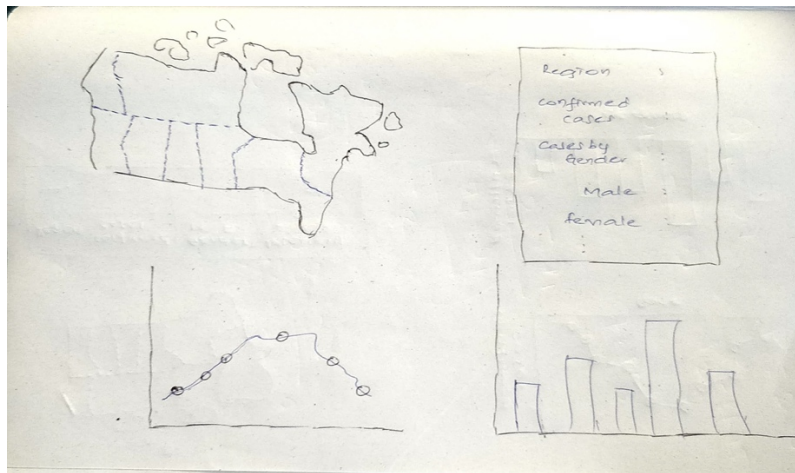 Region :
confirmed
cases :
Cases by
Gender :
Male :
female :
: